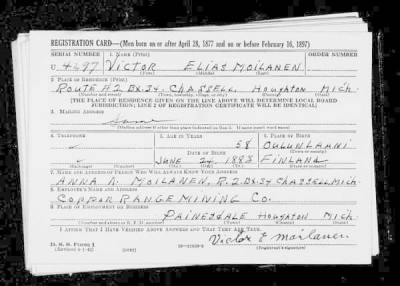 REGISTRATION CARD—(Men born on or after April 28, 1877 and on or before February 16, 1897)
SERIAL NUMBER 1. NAME (Print) ORDER NUMBER
U 4697 VICTOR ELIAS MOILANEN
(First) (Middle) (Last)
2. PLACE OF RESIDENCE (Print)
ROUTE #2 BX.34. CHASSELL HOUGHTON MICH.
(Number and street) (Town, township, village, or city) (County) (State)
[THE PLACE OF RESIDENCE GIVEN ON THE LINE ABOVE WILL DETERMINE LOCAL BOARD
JURISDICTION; LINE 2 OF REGISTRATION CERTIFICATE WILL BE IDENTICAL]
3. MAILING ADDRESS
Same
[Mailing address if other than place indicated on line 2. If same insert word same]
4. TELEPHONE 5. AGE IN YEARS 6. PLACE OF BIRTH
58 OULUNLAANI
DATE OF BIRTH (Town or county)
JUNE 24, 1883 FINLAND
(Exchange) (Number) (Mo.) (Day) (Yr.) (State or country)
7. NAME AND ADDRESS OF PERSON WHO WILL ALWAYS KNOW YOUR ADDRESS
ANNA N. MOILANEN, R.2 BX 34 CHASSELL MICH
8. EMPLOYER'S NAME AND ADDRESS
COPPAR RANGE MINING CO.
9. PLACE OF EMPLOYMENT OR BUSINESS
PAINESDALE HOUGHTON MICH.
(Number and street or R. F. D. number) (Town) (County) (State)
I AFFIRM THAT I HAVE VERIFIED ABOVE ANSWERS AND THAT THEY ARE TRUE.
D. S. S. Form 1
(Revised 4-1-42) (over)
Victor E Moilanen
(Registrant's signature)